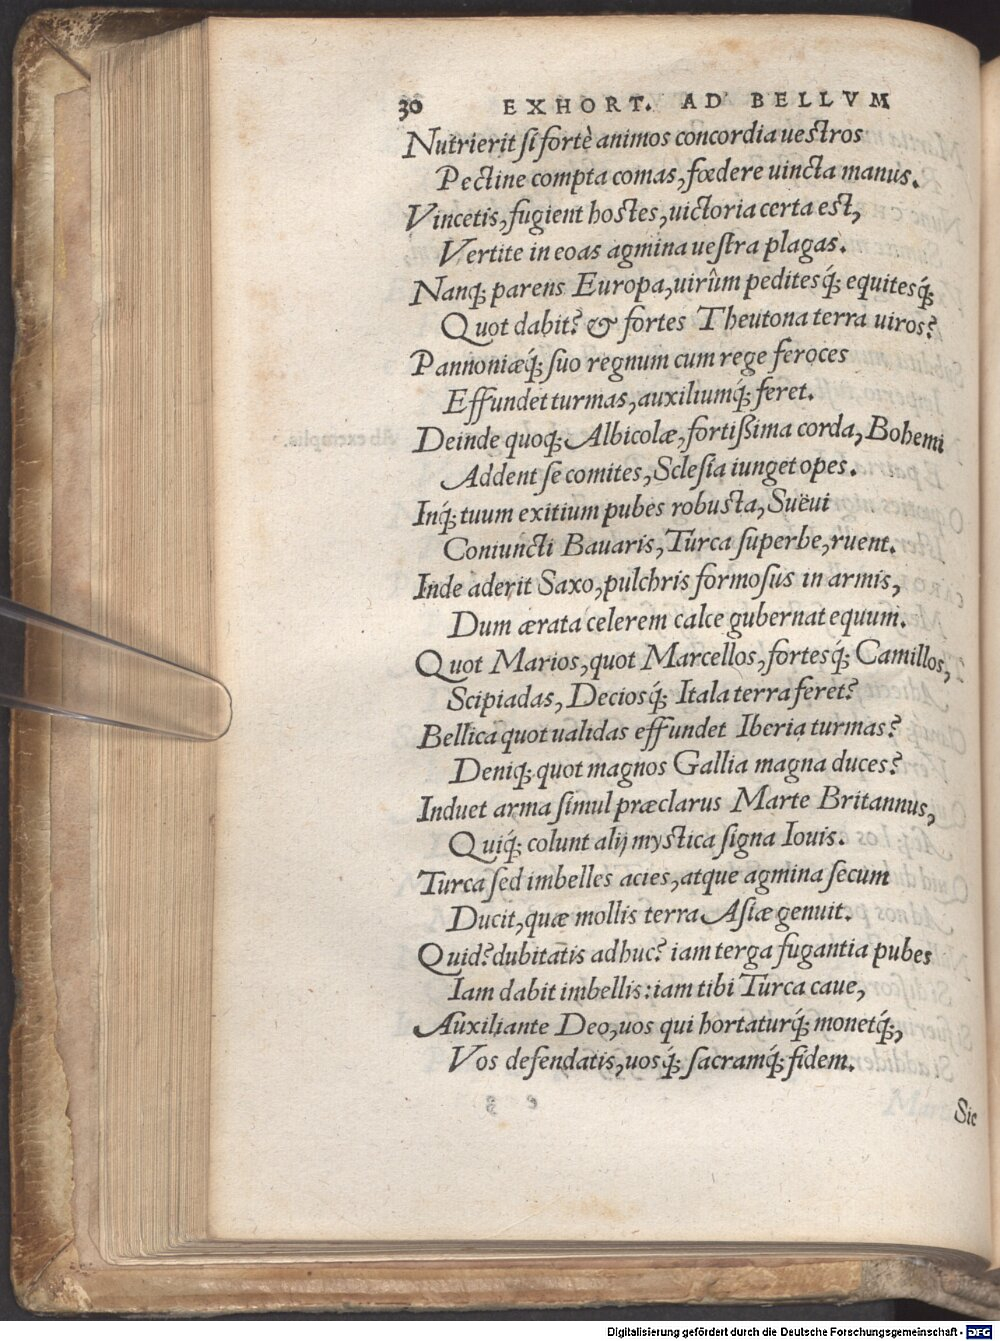 30 EXHORT. AD BELLVM
Nutrierit si fortè animos concordia uestros
Pectine compta comas, fœdere uincta manus.
Vincetis, fugient hostes, uictoria certa est,
Vertite in eoas agmina uestra plagas.
Nanq; parens Europa, uirûm peditesq́; equitesq́;
Quot dabit? & fortes Theutona terra uiros?
Pannoniæq́; suo regnum cum rege feroces
Effundet turmas, auxiliumq́; feret.
Deinde quoq; Albicolæ, fortißima corda, Bohemi
Addent se comites, Sclesia iunget opes.
Inq́; tuum exitium pubes robusta, Suëui
Coniuncti Bauaris, Turca superbe, ruent.
Inde aderit Saxo, pulchris formosus in armis,
Dum ærata celerem calce gubernat equum.
Quot Marios, quot Marcellos, fortesq́; Camillos,
Scipiadas, Deciosq́; Itala terra feret?
Bellica quot ualidas effundet Iberia turmas?
Deniq; quot magnos Gallia magna duces?
Induet arma simul præclarus Marte Britannus,
Quiq́; colunt alij mystica signa Iouis.
Turca sed imbelles acies, atque agmina secum
Ducit, quæ mollis terra Asiæ genuit.
Quid? dubitatis adhuc? iam terga fugantia pubes
Iam dabit imbellis: iam tibi Turca caue,
Auxiliante Deo, uos qui hortaturq́; monetq́;,
Vos defendatis, uosq́; sacramq́; fidem.
Sic
Digitalisierung gefördert durch die Deutsche Forschungsgemeinschaft - DFG